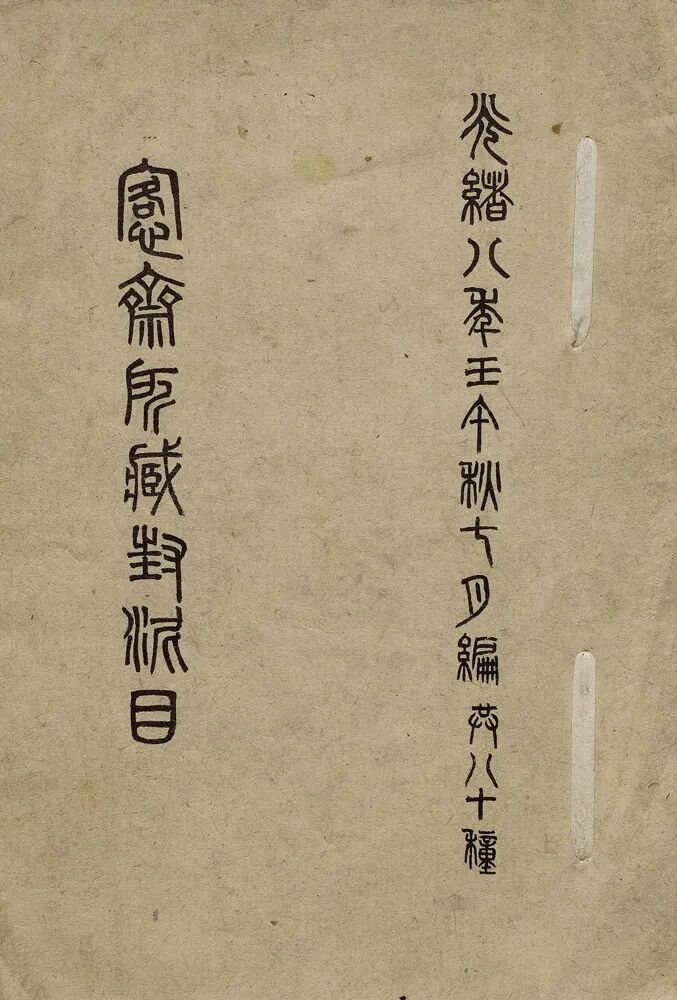 光緒八年壬午秋七月編共八十種
愙齋所藏封泥目